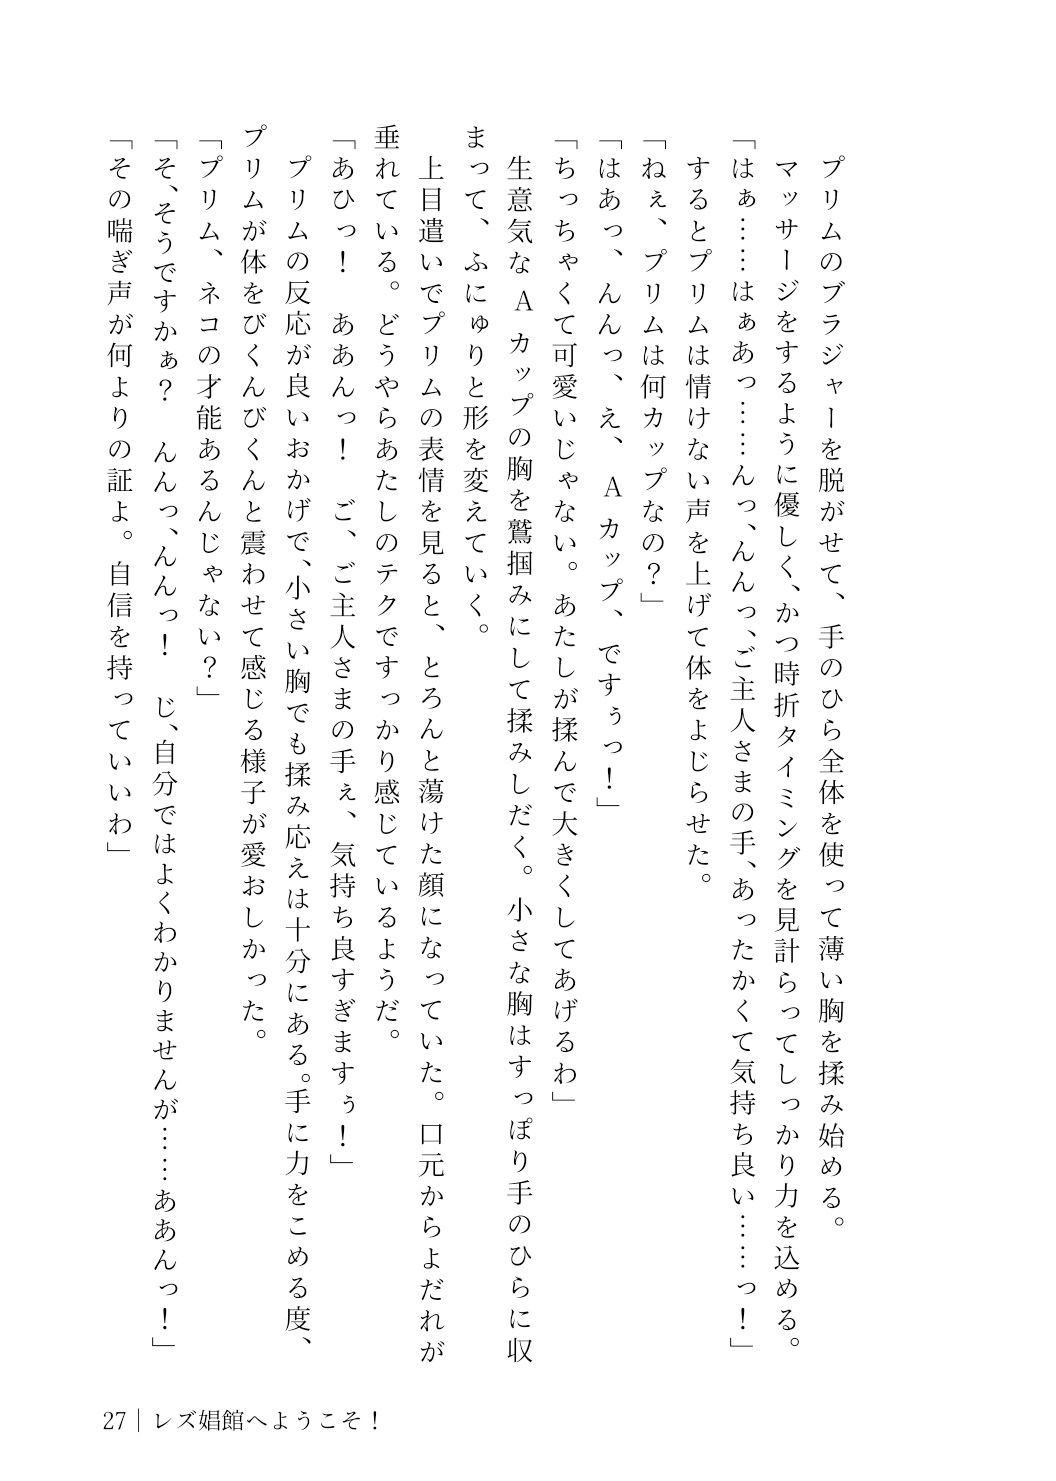 プリムのブラジャーを脱がせて、手のひら全体を使って薄い胸を揉み始める。
マッサージをするように優しく、かつ時折タイミングを見計らってしっかり力を込める。
「はぁ……はぁあっ……んっ、んんっ、ご主人さまの手、あったかくて気持ち良い……っ！」
するとプリムは情けない声を上げて体をよじらせた。
「ねぇ、プリムは何カップなの？」
「はあっ、んんっ、え、Aカップ、ですぅっ！」
「ちっちゃくて可愛いじゃない。あたしが揉んで大きくしてあげるわ」
生意気なAカップの胸を鷲掴みにして揉みしだく。小さな胸はすっぽり手のひらに収
まって、ふにゅりと形を変えていく。
上目遣いでプリムの表情を見ると、とろんと蕩けた顔になっていた。口元からよだれが
垂れている。どうやらあたしのテクですっかり感じているようだ。
「あひっ！　ああんっ！　ご、ご主人さまの手ぇ、気持ち良すぎますぅ！」
プリムの反応が良いおかげで、小さい胸でも揉み応えは十分にある。手に力をこめる度、
プリムが体をびくんびくんと震わせて感じる様子が愛おしかった。
「プリム、ネコの才能あるんじゃない？」
「そ、そうですかぁ？　んんっ、んんっ！　じ、自分ではよくわかりませんが……ああんっ！」
「その喘ぎ声が何よりの証よ。自信を持っていいわ」
27｜レズ娼館へようこそ！